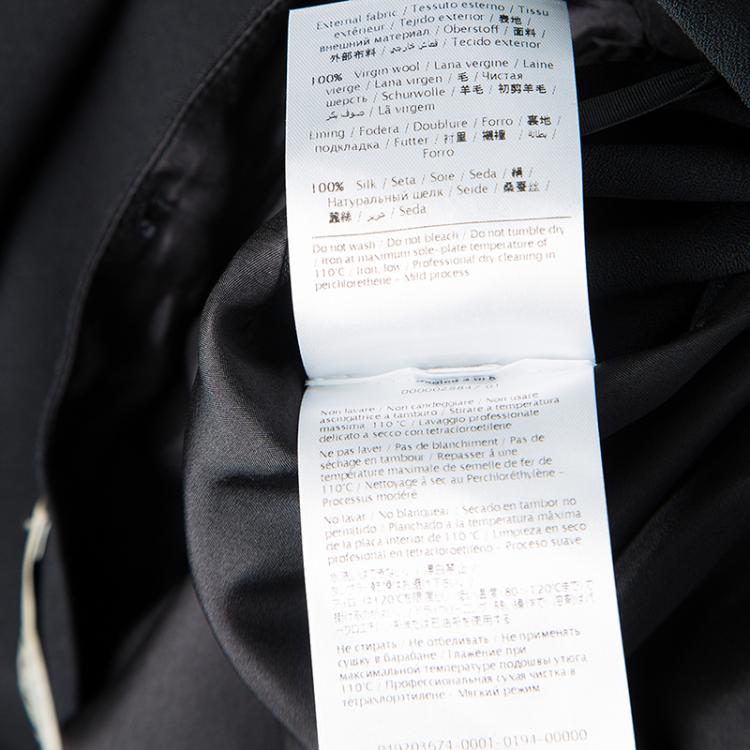 External fabric / Tessuto esterno / Tissu
extérieur / Tejido exterior / 表地 /
внешний материал / Oberstoff / 面料 /
外部布料 / / Tecido exterior
100% Virgin wool / Lana vergine / Laine
vierge / Lana virgen / 毛 / Чистая
шерсть / Schurwolle / 羊毛 / 初剪羊毛 /
صوف بكر / Lã virgem
Lining / Fodera / Doublure / Forro / 裏地 /
подкладка / Futter / 衬里 / 襯裡 / بطانة /
Forro
100% Silk / Seta / Soie / Seda / 絹 /
Натуральный шелк / Seide / 桑蚕丝 /
蠶絲 / حرير / Seda
Do not wash / Do not bleach / Do not tumble dry
/ Iron at maximum sole-plate temperature of
110°C / Iron, low / Professional dry cleaning in
perchlorethene - Mild process
Non lavare / Non candeggiare / Non usare
asciugatrice a tamburo / Stirare a temperatura
massima 110°C / Lavaggio professionale
delicato a secco con tetracloroetilene
Ne pas laver / Pas de blanchiment / Pas de
séchage en tambour / Repasser à une
température maximale de semelle de fer de
110°C / Nettoyage à sec au Perchloréthylène -
Processus modéré
No lavar / No blanquear / Secado en tambor no
permitido / Planchado a la temperatura máxima
de la placa interior de 110°C / Limpieza en seco
profesional en tetracloroetileno - Proceso suave
Не стирать / Не отбеливать / Не применять
сушку в барабане / Глажение при
максимальной температуре подошвы утюга
110°C / Профессиональная сухая чистка в
тетрахлорэтилене - Мягкий режим
949203674-0001-0194-00000